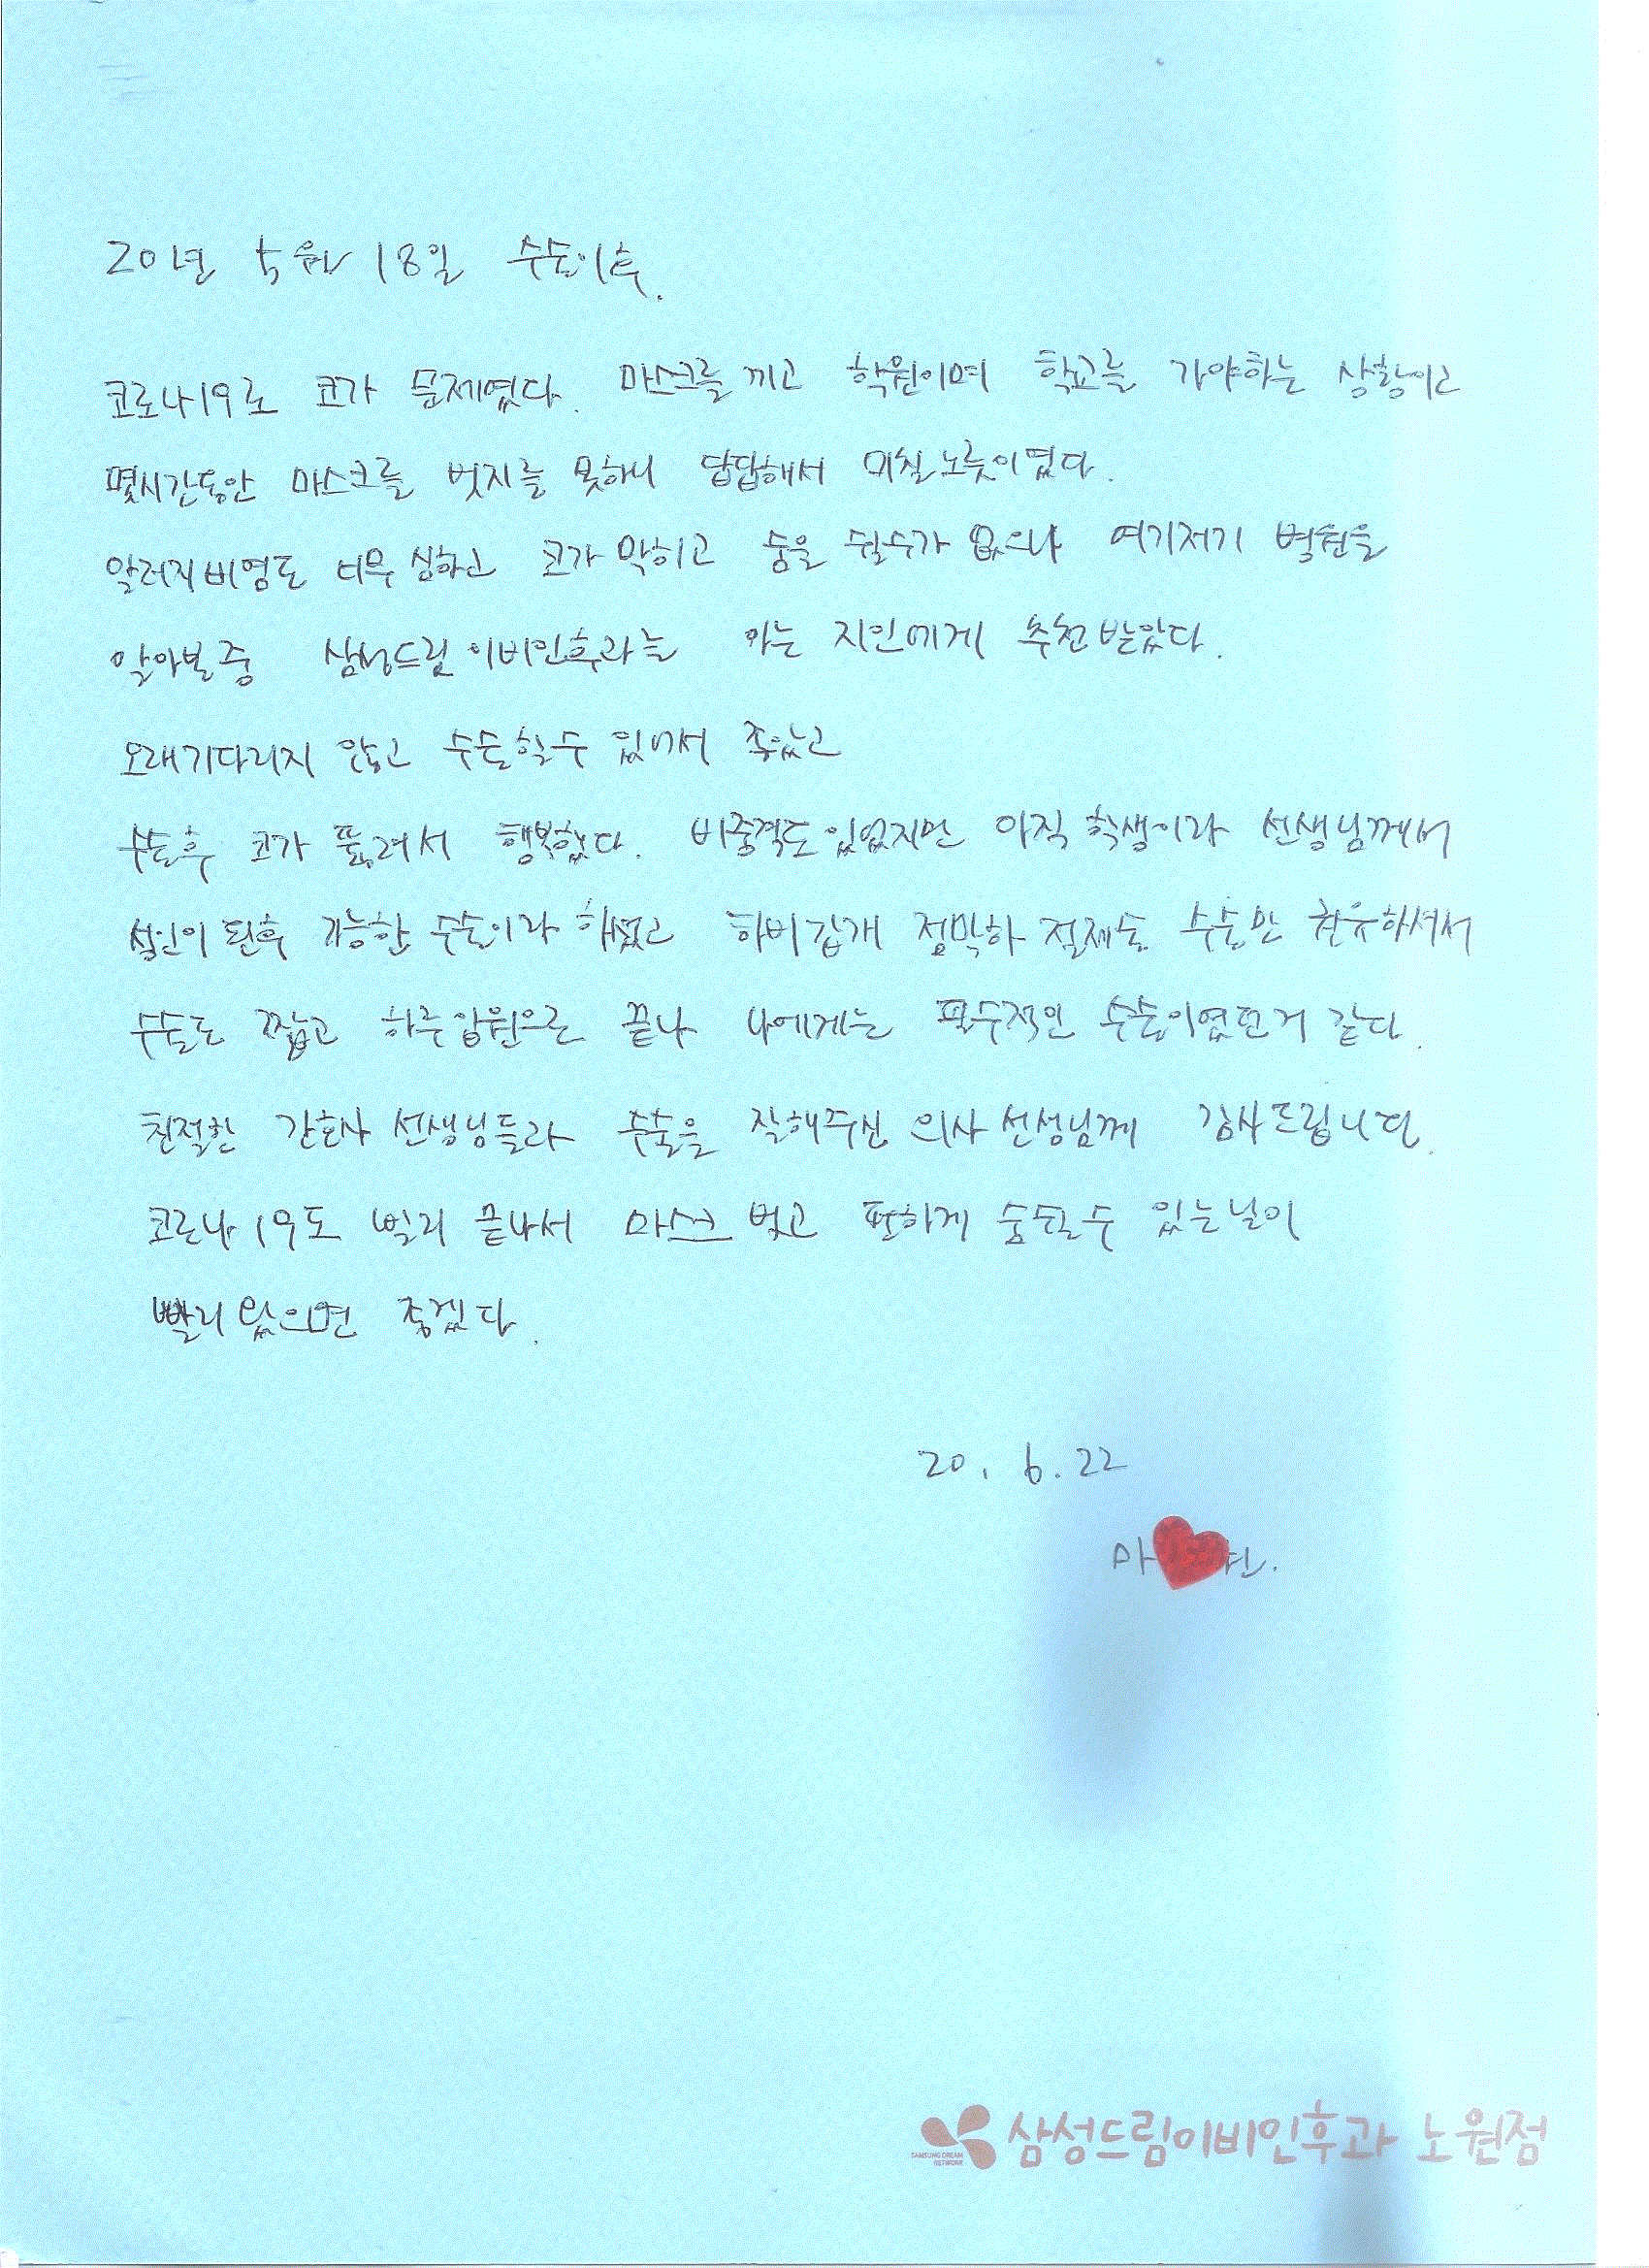 20년 5월 18일 수술이후.
코로나19로 코가 문제였다. 마스크를 끼고 학원이며 학교를 가야하는 상황이고
몇시간동안 마스크를 벗지를 못하니 답답해서 미칠노릇이였다.
알러지비염도 너무 심하고 코가 막히고 숨을 쉴수가 없으나 여기저기 병원을
알아보중 삼성드림이비인후과를 아는 지인에게 추천받았다.
오래기다리지 않고 수술할수 있어서 좋았고
수술후 코가 뚫려서 행복했다. 비중격도있었지만 아직 학생이라 선생님께서
성인이 된후 가능한 수술이라 하셨고 하비갑개 점막하 절제술 수술만 권유하셔서
수술도 짧고 하루입원으로 끝나 나에게는 필수적인 수술이였던거 같다.
친절한 간호사 선생님들과 수술을 잘해주신 의사선생님께 감사드립니다.
코로나19도 빨리 끝나서 마스크 벗고 편하게 숨쉴수 있는날이
빨리왔으면 좋겠다.
20. 6. 22
마 연.
삼성드림이비인후과 노원점
SAMSUNG DREAM
NETWORK